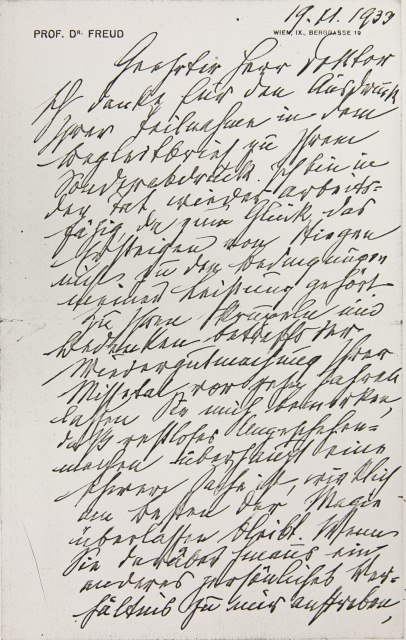 19.11.1933
PROF. DR. FREUD
WIEN, IX., BERGGASSE 19
Geehrter Herr Doktor
Ich danke für den Ausdruck
Ihrer Teilnahme in dem
Begleitbrief zu Ihrem
Sonderabdruck. Ich bin in
der Tat wieder arbeits-
fähig da zum Glück das
Ersteigen von Stiegen
nicht zu den Bedingungen
meiner Leistung gehört
Zu Ihren Skrupeln und
Bedenken betreffs der
Wiedergutmachung Ihrer
Missetat vor Jahren
lassen Sie mich bemerken,
daß restloses Ungeschehen-
machen überhaupt eine
schwere Sache ist, wirklich
am besten der Magie
überlassen bleibt. Wenn
Sie darüber hinaus ein
anderes persönliches Ver-
hältnis zu mir anstreben,